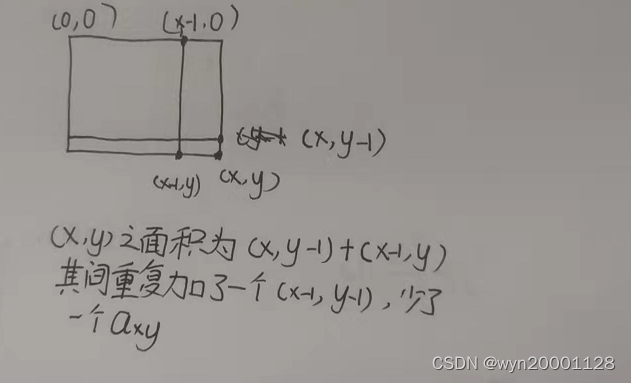 (0,0) (x-1,0)
(x,y-1)
(x-1,y) (x,y)
(x,y)之面积为(x,y-1)+(x-1,y)
其间重复加了一个(x-1,y-1),少了
一个axy
CSDN @wyn20001128